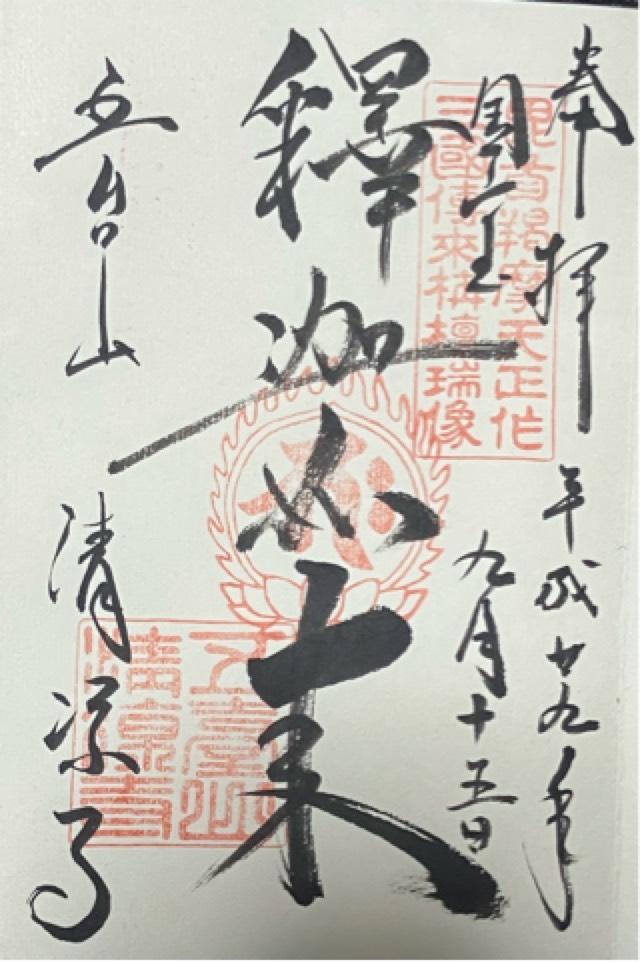 奉拝 平成廿九年
九月十五日
国宝
毘首羯摩天正作
三國傳來栴檀瑞像
釋迦如来
五台山 清凉寺
五臺山
清凉寺